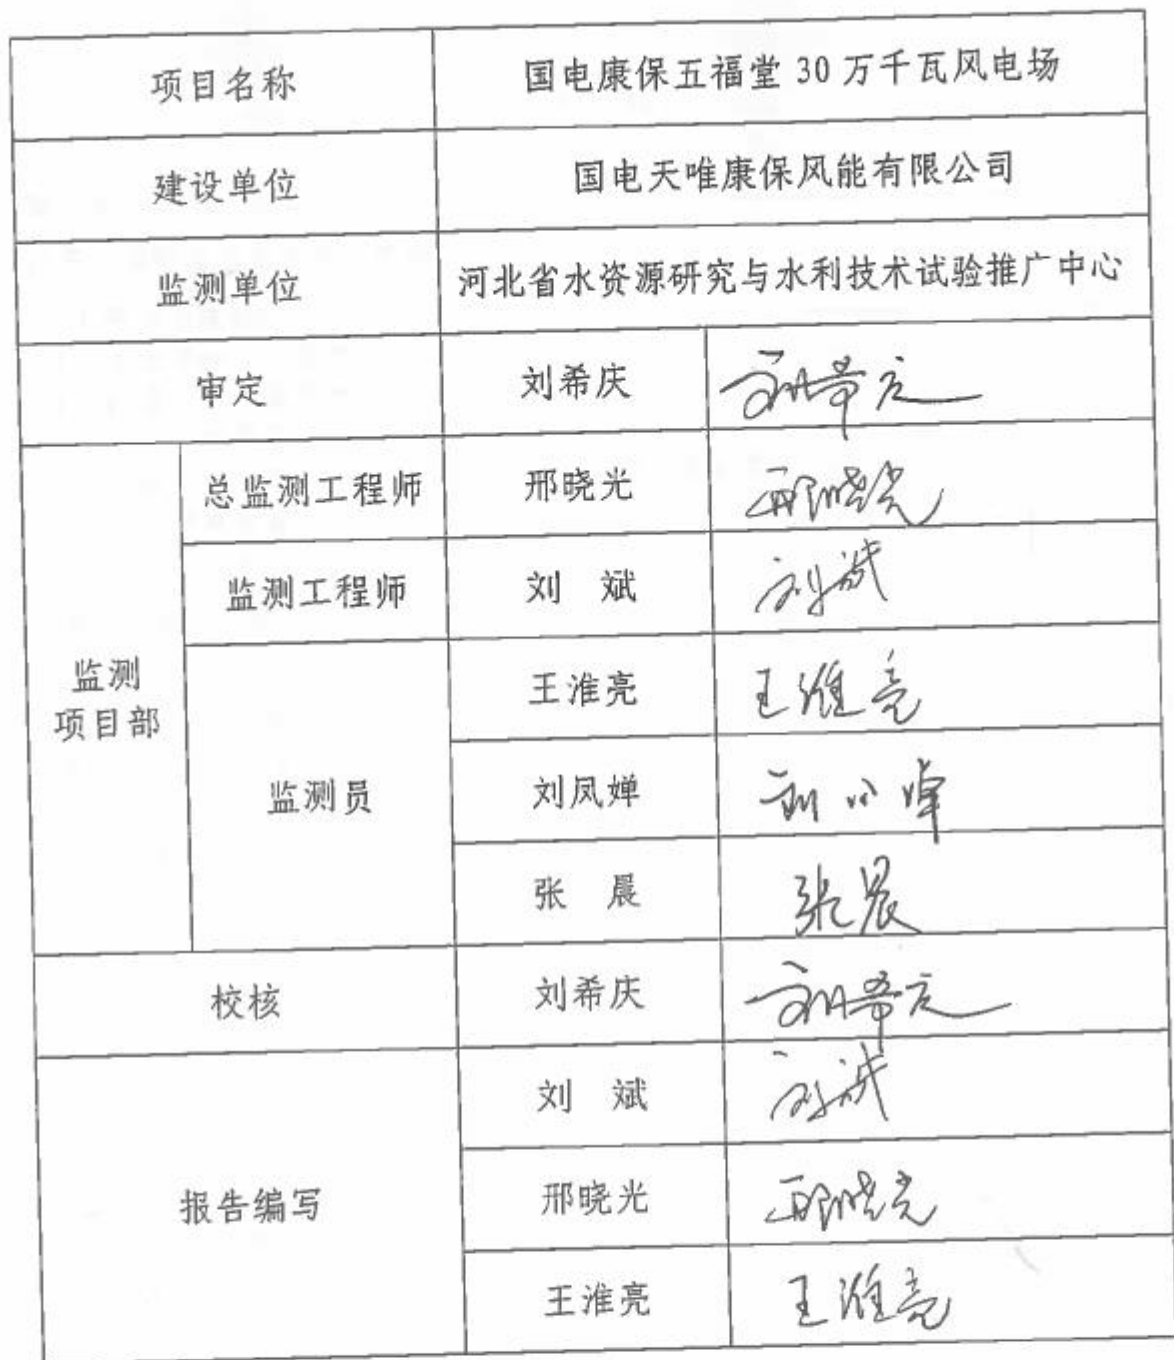 项目名称 国电康保五福堂 30 万千瓦风电场
建设单位 国电天唯康保风能有限公司
监测单位 河北省水资源研究与水利技术试验推广中心
审定 刘希庆 刘希庆
总监测工程师 邢晓光 邢晓光
监测工程师 刘 斌 刘斌
监测
项目部
王淮亮 王淮亮
监测员 刘凤婵 刘凤婵
张 晨 张晨
校核 刘希庆 刘希庆
刘 斌 刘斌
报告编写 邢晓光 邢晓光
王淮亮 王淮亮